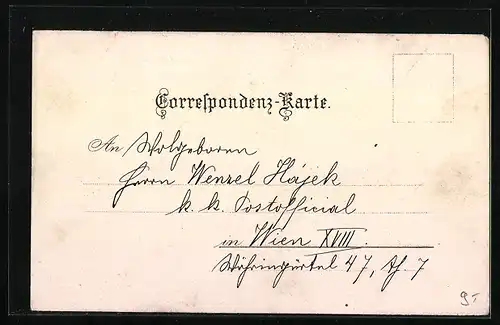 Correspondenz-Karte.
An Wolgeboren
Herrn Wenzel Hájek
k. k. Postofficial
in Wien XVIII.
Währingürtel 47, Th. 7
9-